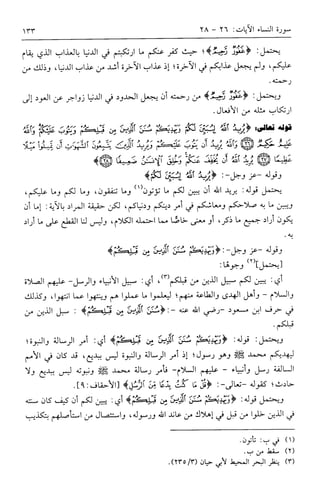 سورة النساء الآيات: ٢٦ - ٢٨
١٣٣
يحتمل: ﴿غَفُورٌ رَّحِيمٌ﴾؛ حيث كفر عنكم ما ارتكبتم في الدنيا بالعذاب الذي يقام
عليكم، ولم يجعل عذابكم في الآخرة؛ إذ عذاب الآخرة أشد من عذاب الدنيا، وذلك من
رحمته.
ويحتمل: ﴿غَفُورٌ رَّحِيمٌ﴾ من رحمته أن يجعل الحدود في الدنيا زواجر عن العود إلى
ارتكاب مثله من الأفعال.
قوله تعالى: ﴿يُرِيدُ اللَّهُ لِيُبَيِّنَ لَكُمْ وَيَهْدِيَكُمْ سُنَنَ الَّذِينَ مِن قَبْلِكُمْ وَيَتُوبَ عَلَيْكُمْ وَاللَّهُ
عَلِيمٌ حَكِيمٌ ﴿٢٦﴾ وَاللَّهُ يُرِيدُ أَن يَتُوبَ عَلَيْكُمْ وَيُرِيدُ الَّذِينَ يَتَّبِعُونَ الشَّهَوَاتِ أَن تَمِيلُوا مَيْلًا
عَظِيمًا ﴿٢٧﴾ يُرِيدُ اللَّهُ أَن يُخَفِّفَ عَنكُمْ وَخُلِقَ الْإِنسَانُ ضَعِيفًا ﴿٢٨﴾﴾
وقوله -عز وجل-: ﴿يُرِيدُ اللَّهُ لِيُبَيِّنَ لَكُمْ﴾
يحتمل قوله: يريد الله أن يبين لكم ما تؤتون(١) وما تتقفون، وما لكم وما عليكم،
ويبين ما به صلاحكم ومعاشكم في أمر دينكم ودنياكم، لكن حقيقة المراد بالآية: إما أن
يكون أراد جميع ما ذكر، أو معنى خاصًّا مما احتمله الكلام، وليس لنا القطع على ما أراد
به.
وقوله -عز وجل-: ﴿وَيَهْدِيَكُمْ سُنَنَ الَّذِينَ مِن قَبْلِكُمْ﴾
[يحتمل](٢) وجوهًا:
أي: يبين لكم سبيل الذين من قبلكم(٣)، أي: سبيل الأنبياء والرسل- عليهم الصلاة
والسلام - وأهل الهدى والطاعة منهم؛ ليعلموا ما عملوا هم وينتهوا عما انتهوا، وكذلك
في حرف ابن مسعود -رضي الله عنه -: ﴿وَيَهْدِيَكُمْ سُنَنَ الَّذِينَ مِن قَبْلِكُمْ﴾ : سبل الذين من
قبلكم.
ويحتمل: قوله: ﴿وَيَهْدِيَكُمْ سُنَنَ الَّذِينَ مِن قَبْلِكُمْ﴾ أي: أمر الرسالة والنبوة؛
ليهديكم محمد ﷺ وهو رسول؛ إذ أمر الرسالة والنبوة ليس ببديع، قد كان في الأمم
السالفة رسل وأنبياء - عليهم السلام- فأمر رسالة محمد ﷺ ونبوته ليس ببديع ولا
حادث؛ كقوله -تعالى-: ﴿قُلْ مَا كُنتُ بِدْعًا مِّنَ الرُّسُلِ﴾ [الأحقاف: ٩].
ويحتمل قوله: ﴿وَيَهْدِيَكُمْ سُنَنَ الَّذِينَ مِن قَبْلِكُمْ﴾ أي: يبين لكم أن كيف كان سنته
في الذين خلوا من قبل في إهلاك من عاند الله ورسوله، واستئصال من استأصلهم بتكذيب
(١) في ب: تأتون.
(٢) سقط من ب.
(٣) ينظر البحر المحيط لأبي حيان (٢٣٥/٣)